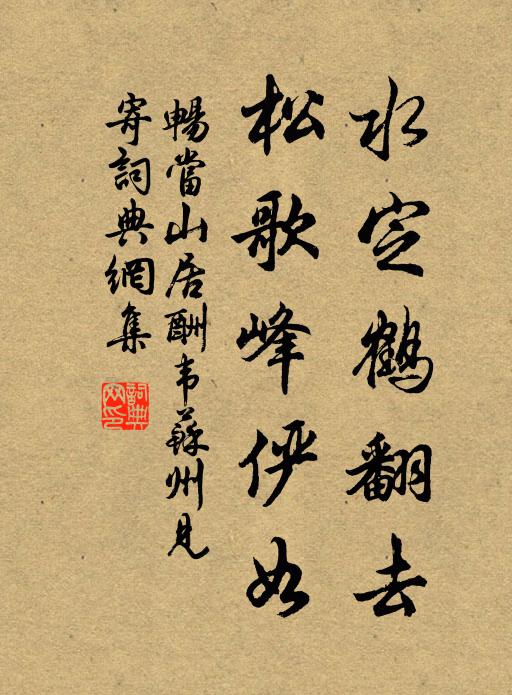 水定鶴翻去
松歌峰俨如
暢當山居酬韦蘇州見
寄詞典網集
詞典
网印